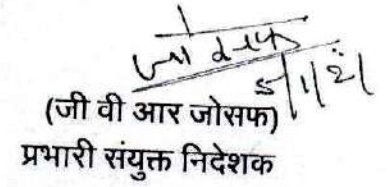 जोसफ
(जी वी आर जोसफ)
प्रभारी संयुक्त निदेशक